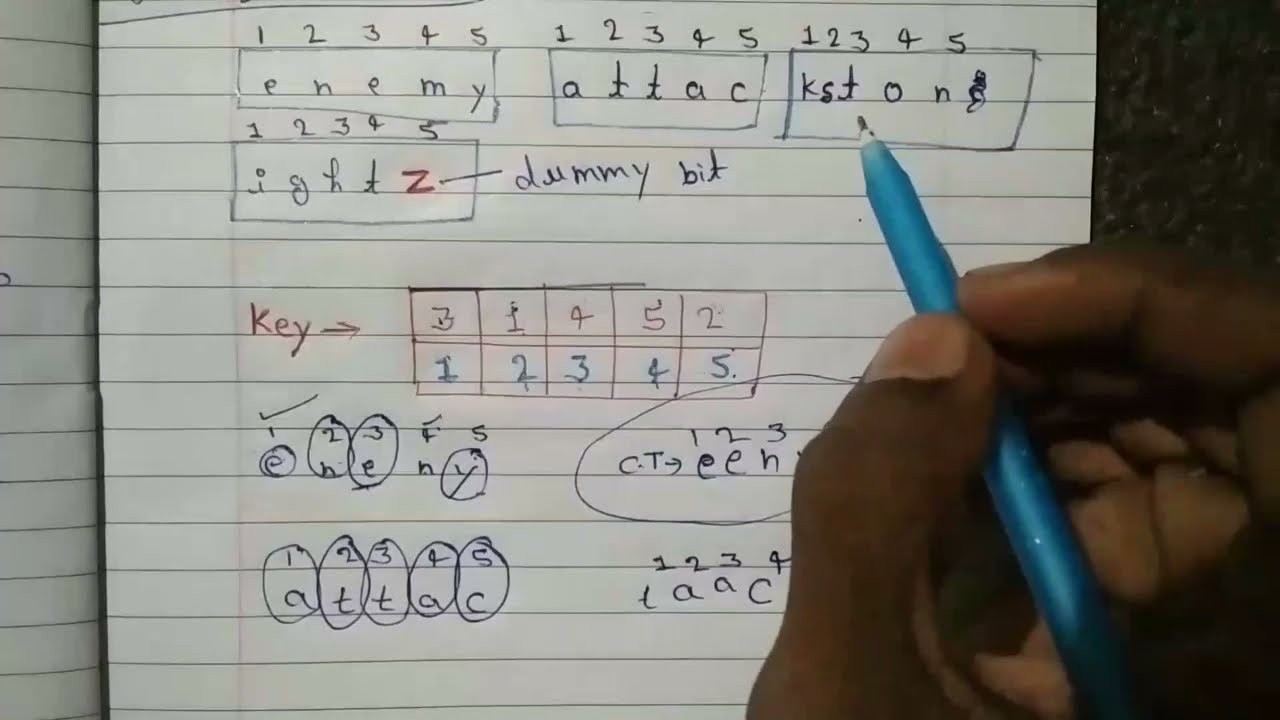 1 2 3 4 5 1 2 3 4 5 1 2 3 4 5
e n e m y a t t a c k s t o n
1 2 3 4 5
i g h t z — dummy bit
Key → 3 1 4 5 2
1 2 3 4 5.
1 2 3 4 5 1 2 3
e n e n y C.T→ e e n
1 2 3 4 5 1 2 3 4
a t t a c t a a c